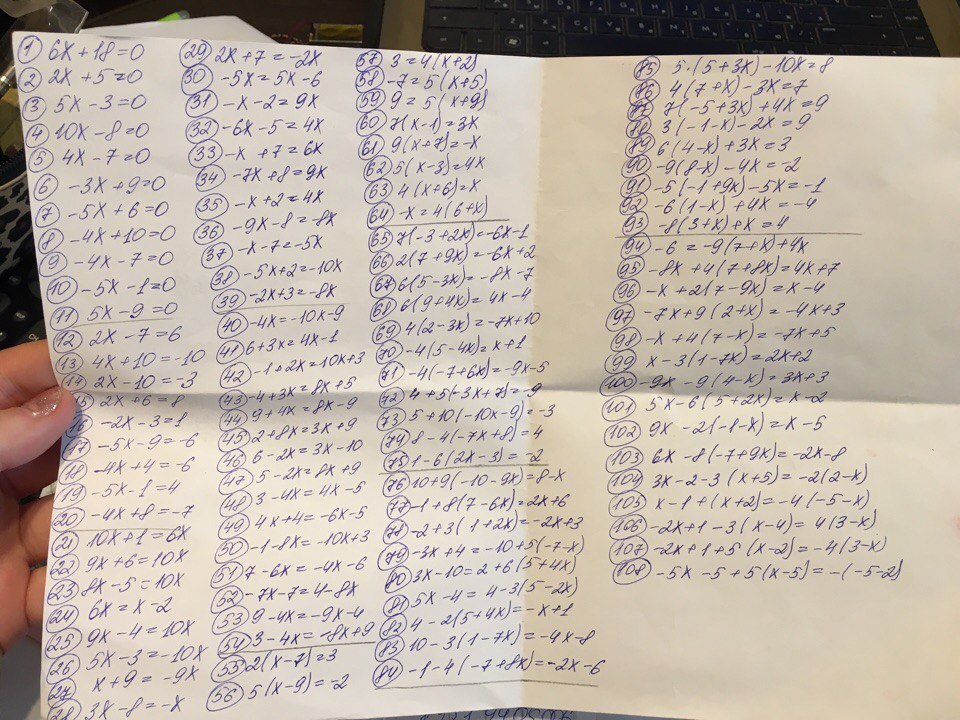 1 6x + 18 = 0
2 2x + 5 = 0
3 5x - 3 = 0
4 10x - 8 = 0
5 4x - 7 = 0
6 -3x + 9 = 0
7 -5x + 6 = 0
8 -4x + 10 = 0
9 -4x - 7 = 0
10 -5x - 1 = 0
11 5x - 9 = 0
12 2x - 7 = 6
13 4x + 10 = -10
14 2x - 10 = -3
15 2x + 6 = 8
16 -2x - 3 = 1
17 -5x - 9 = -6
18 -4x + 4 = -6
19 -5x - 1 = 4
20 -4x + 8 = -7
21 10x + 1 = 6x
22 9x + 6 = 10x
23 8x - 5 = 10x
24 6x = x - 2
25 9x - 4 = 10x
26 5x - 3 = -10x
27 x + 9 = -9x
28 3x - 8 = -x
29 2x + 7 = -2x
30 -5x = 5x - 6
31 -x - 2 = 9x
32 -6x - 5 = 4x
33 -x + 7 = 6x
34 -7x + 8 = 9x
35 -x + 2 = 4x
36 -9x - 8 = -8x
37 -x - 7 = -5x
38 -5x + 2 = -10x
39 -2x + 3 = -8x
40 -4x = -10x - 9
41 6 + 3x = 4x - 1
42 -1 + 2x = 10x + 3
43 -4 + 3x = 8x + 5
44 9 + 4x = 8x - 9
45 2 + 8x = 3x + 9
46 6 - 2x = 3x - 10
47 5 - 2x = 8x + 9
48 3 - 4x = 4x - 5
49 4x + 4 = -6x - 5
50 -1 - 8x = -10x + 3
51 7 - 6x = -4x - 6
52 -7x - 7 = 4 - 8x
53 9 - 4x = -9x - 4
54 3 - 4x = -8x + 9
55 2(x - 7) = 3
56 5(x - 9) = -2
57 3 = 4(x + 2)
58 -7 = 5(x + 5)
59 9 = 5(x + 9)
60 7(x - 1) = 3x
61 9(x + 7) = -x
62 5(x - 3) = 4x
63 4(x + 6) = x
64 -x = 4(6 + x)
65 7(-3 + 2x) = -6x - 1
66 2(7 + 9x) = -6x + 2
67 6(5 - 3x) = -8x - 7
68 6(9 + 4x) = 4x - 4
69 4(2 - 3x) = -7x + 10
70 -4(5 - 4x) = x + 1
71 -4(-7 + 6x) = -9x - 5
72 4 + 5(-3x + 7) = -9
73 5 + 10(-10x - 9) = -3
74 8 - 4(-7x + 8) = 4
75 1 - 6(2x - 3) = -2
76 10 + 9(-10 - 9x) = 8 - x
77 -1 + 8(7 - 6x) = 2x + 6
78 -2 + 3(1 + 2x) = -2x + 3
79 -3x + 4 = -10 + 5(-7 - x)
80 3x - 10 = 2 + 6(5 + 4x)
81 5x - 4 = 4 - 3(5 - 2x)
82 4 - 2(5 + 4x) = -x + 1
83 10 - 3(1 - 7x) = -4x - 8
84 -1 - 4(-7 + 8x) = -2x - 6
85 5 · (5 + 3x) - 10x = 8
86 4(7 + x) - 3x = 7
87 7(-5 + 3x) + 4x = 9
88 3(-1 - x) - 2x = 9
89 6(4 - x) + 3x = 3
90 -9(8 - x) - 4x = -2
91 -5(-1 + 9x) - 5x = -1
92 -6(1 - x) + 4x = -4
93 -8(3 + x) + x = 4
94 -6 = -9(7 + x) + 4x
95 -8x + 4(7 + 8x) = 4x + 7
96 -x + 2(7 - 9x) = x - 4
97 -7x + 9(2 + x) = -4x + 3
98 -x + 4(7 - x) = -7x + 5
99 x - 3(1 - 7x) = 2x + 2
100 -9x - 9(4 - x) = 3x + 3
101 5x - 6(5 + 2x) = x - 2
102 9x - 2(-1 - x) = x - 5
103 6x - 8(-7 + 9x) = -2x - 8
104 3x - 2 - 3(x + 5) = -2(2 - x)
105 x - 1 + (x + 2) = -4(-5 - x)
106 -2x + 1 - 3(x - 4) = 4(3 - x)
107 -2x + 1 + 5(x - 2) = -4(3 - x)
108 -5x - 5 + 5(x - 5) = -(-5 - 2)